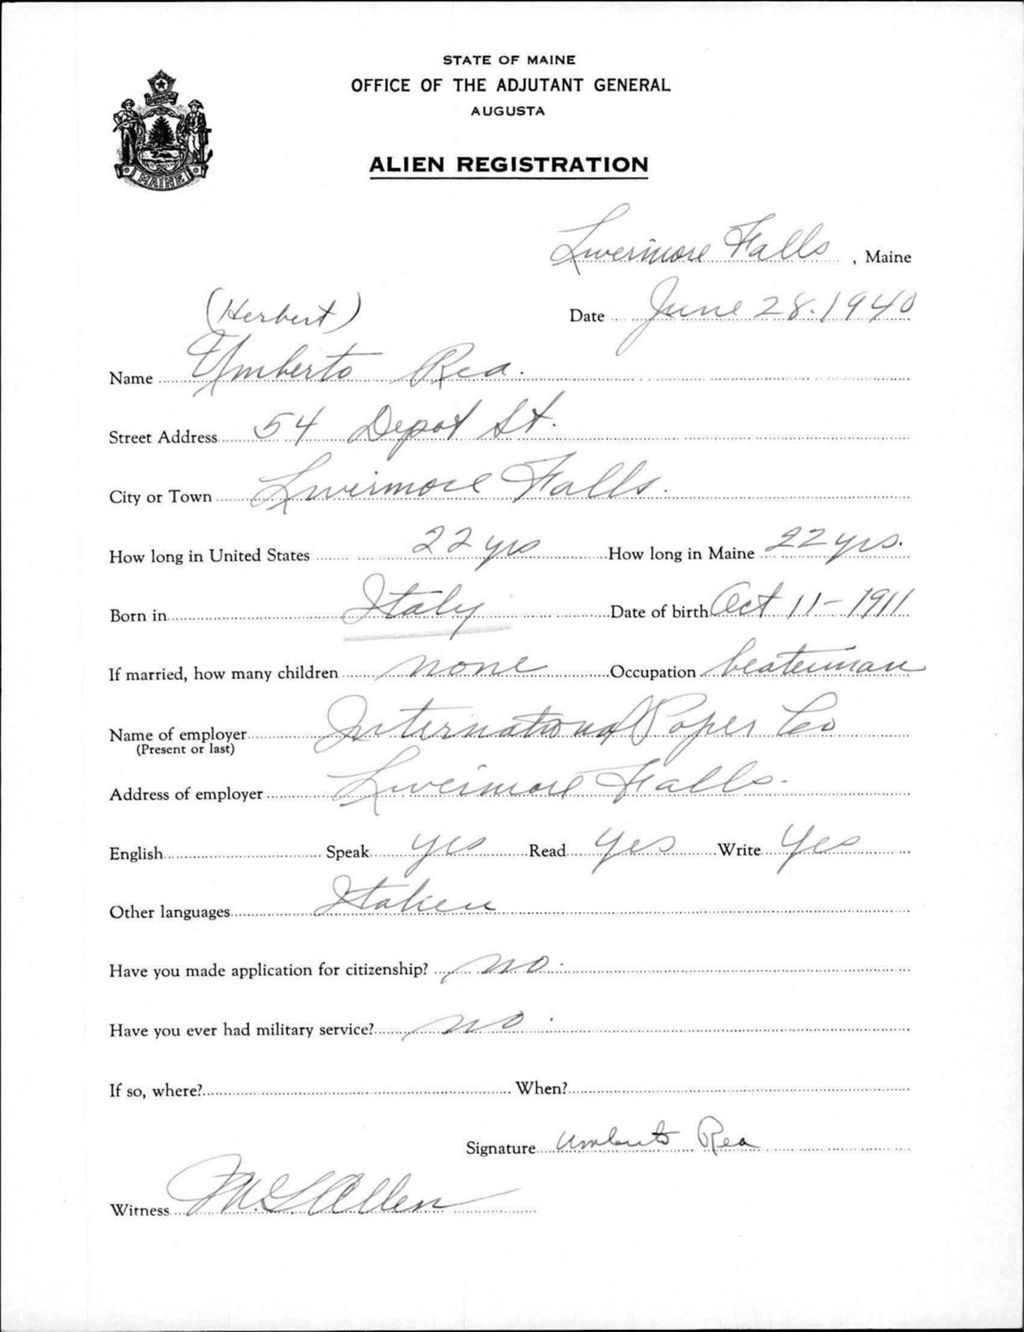 STATE OF MAINE
OFFICE OF THE ADJUTANT GENERAL
AUGUSTA
ALIEN REGISTRATION
MAINE
Livermore Falls, Maine
Date June 28. 1940
(Herbert)
Name Umberto Rea.
Street Address 54 Depot St.
City or Town Livermore Falls.
How long in United States 22 yrs How long in Maine 22 yrs.
Born in Italy Date of birth Oct 11 - 1911
If married, how many children none Occupation beaterman
Name of employer International Paper Co
(Present or last)
Address of employer Livermore Falls.
English Speak yes Read yes Write Yes
Other languages Italien
Have you made application for citizenship? no.
Have you ever had military service? no.
If so, where? When?
Signature Umberto Rea
Witness M. L. Allen